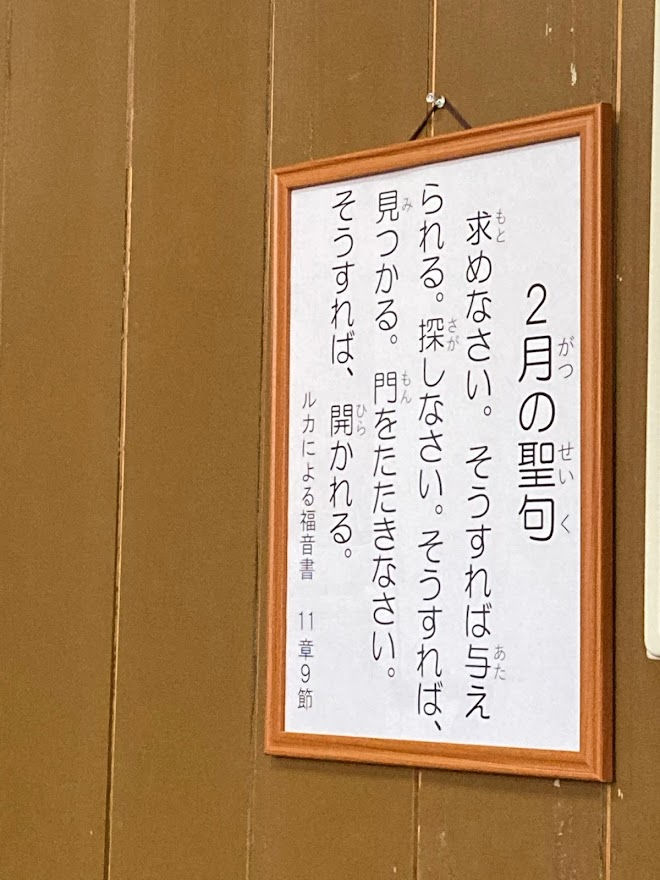 2月の聖句
求めなさい。そうすれば与え
られる。探しなさい。そうすれば、
見つかる。門をたたきなさい。
そうすれば、開かれる。
ルカによる福音書 11章9節